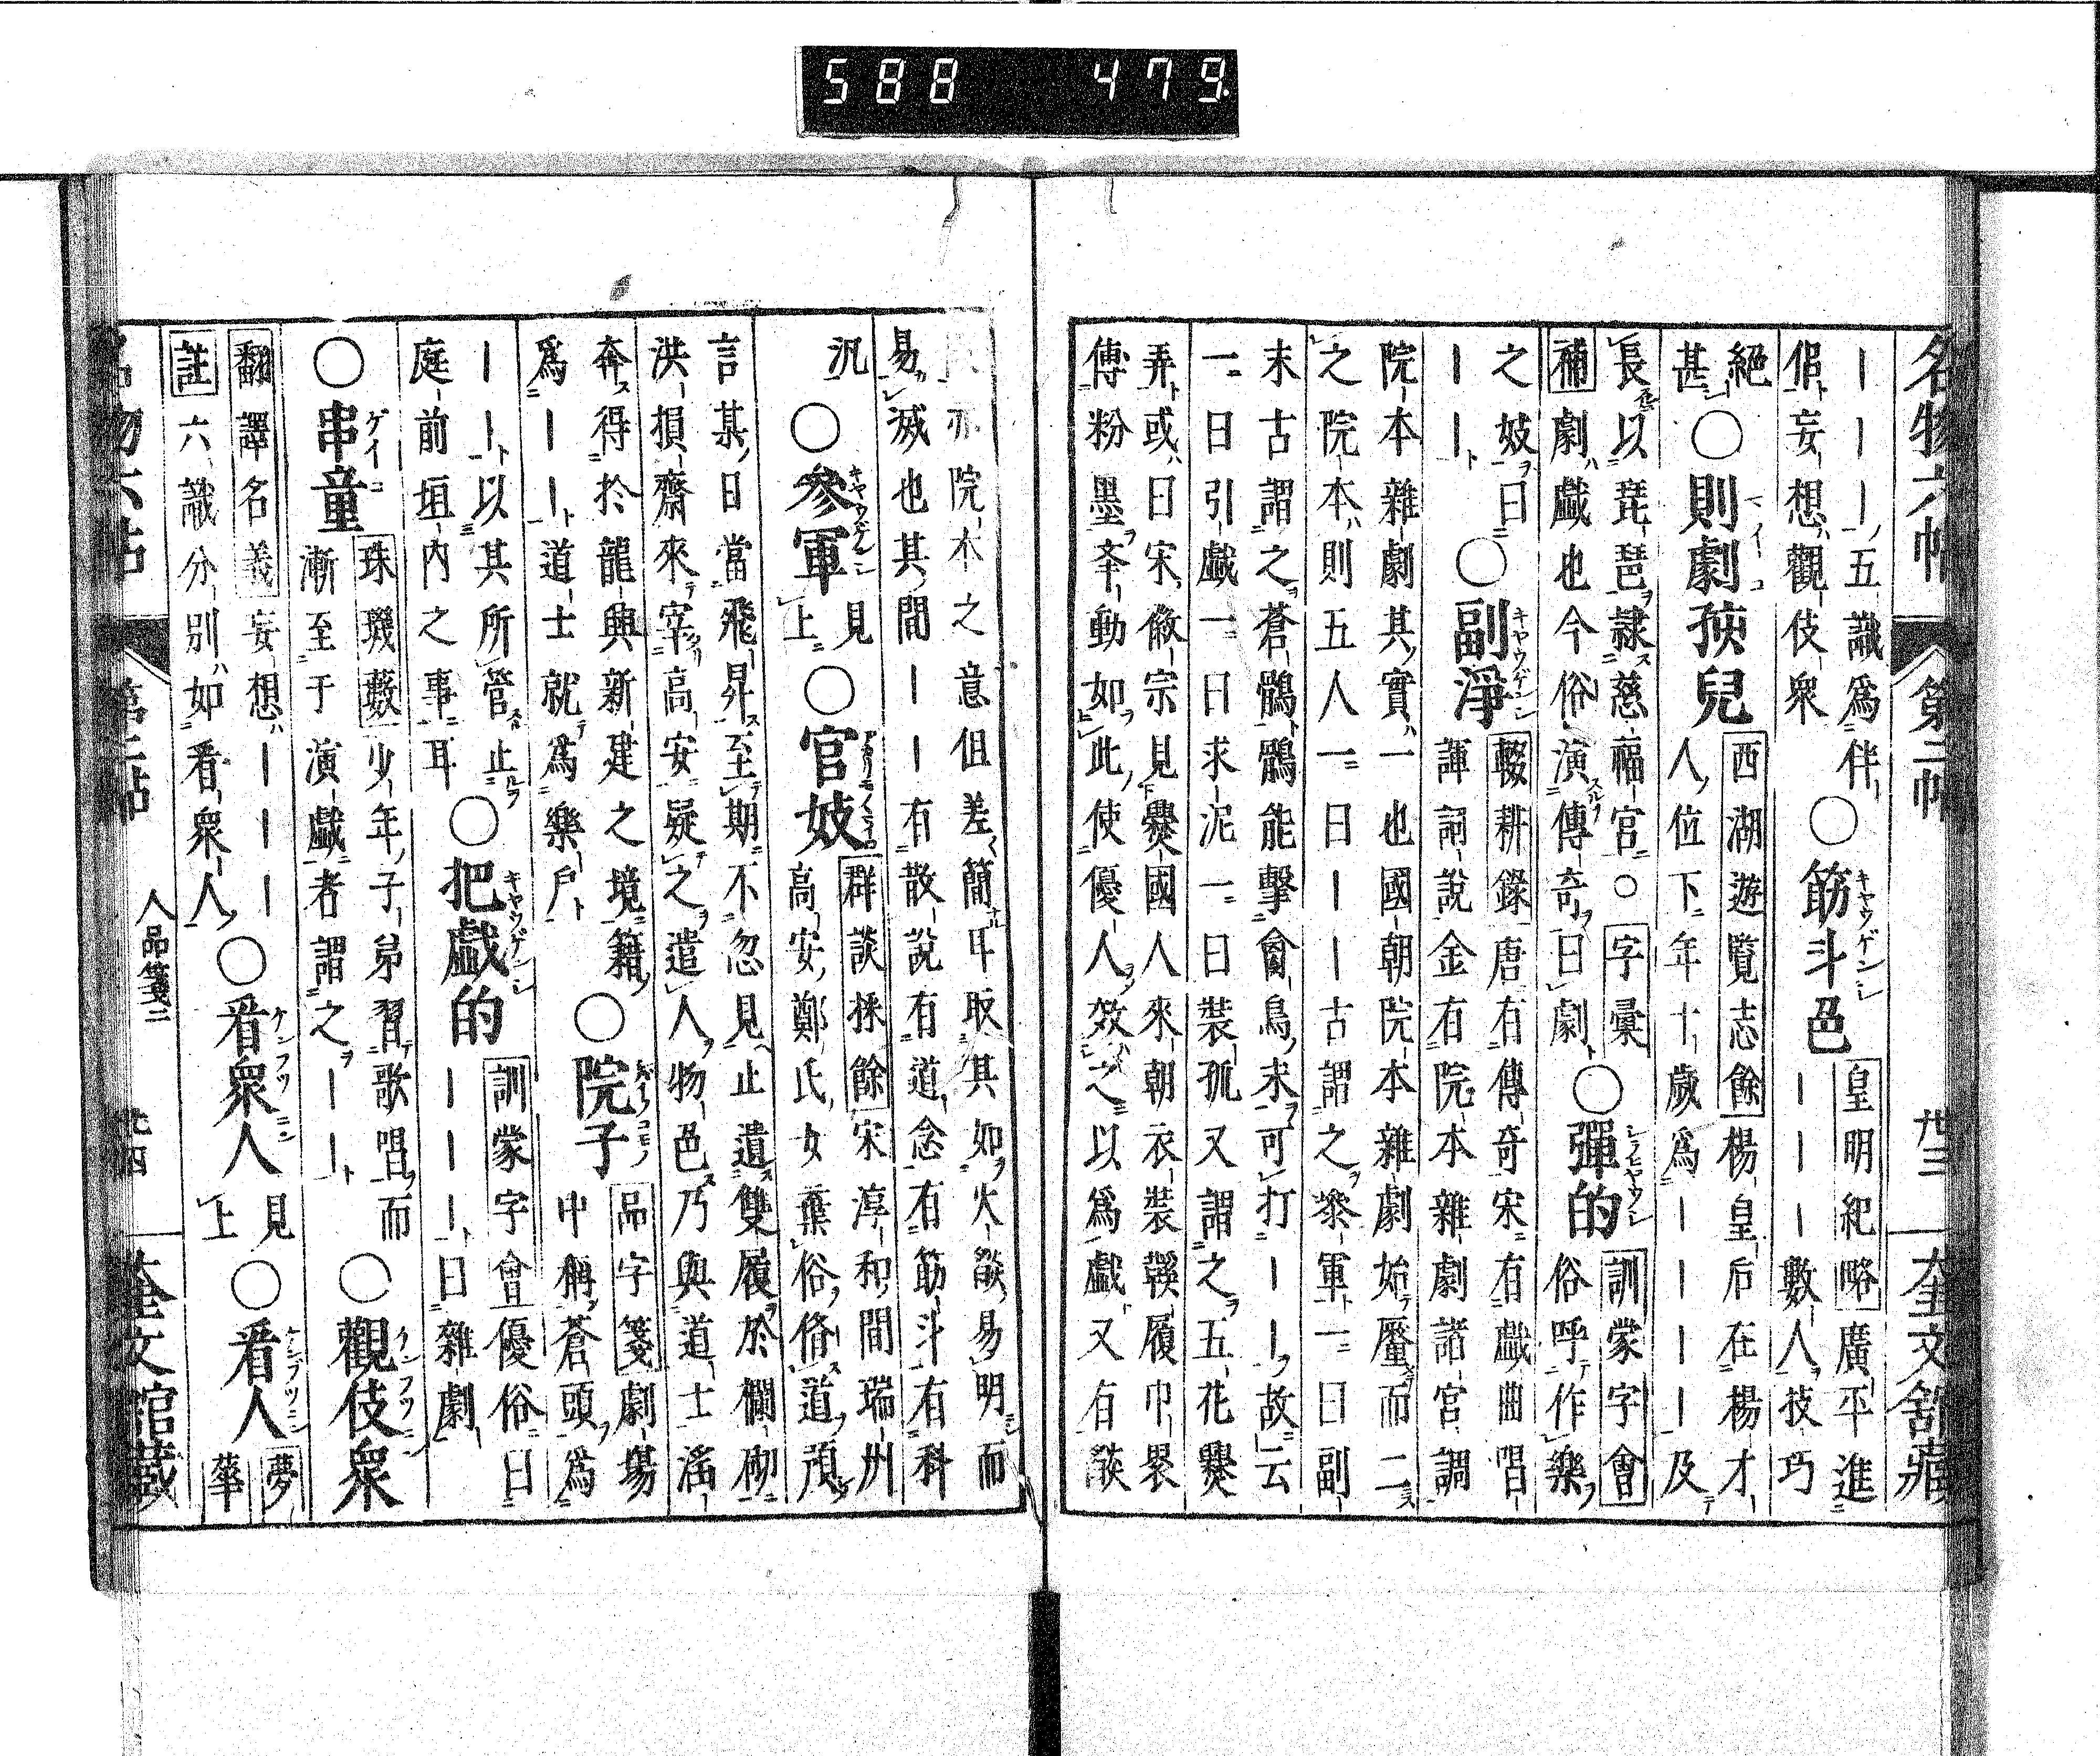 名物六帖 第二帖 廿三 奎文舘藏
｜｜｜｜五識爲伴
佀妄想觀伎衆
○筋斗色 キヤウゲンシ
皇明紀略廣平進
｜｜｜數人技巧
絕
甚
○則劇孩兒
西湖遊覽志餘楊皇后在楊才
人位下年十歲爲｜｜｜｜及
長以琵琶隸慈福宮○字彙
補劇戲也今俗演傳奇曰劇
○彈的
訓蒙字會
俗呼作樂
之妓曰
｜｜
○副淨 キヤウゲンシ
輟耕錄唐有傳奇宋有戲曲唱
諢詞說金有院本雜劇諸宮調
院本雜劇其實一也國朝院本雜劇始釐而二
之院本則五人一曰｜｜古謂之參軍一曰副
末古謂之蒼鶻鶻能擊禽鳥末可打｜｜故云
一曰引戲一曰末泥一曰裝孤又謂之五花爨
弄或曰宋徽宗見爨國人來朝衣裝鞵履巾裹
傅粉墨夆動如此使優人效之以爲戲又有燄
亦院本之意但差簡耳取其如火燄易明而
易滅也其間｜｜有散說有道念有筋斗有科
汎
○參軍 キヤウゲンシ
見
上
○官妓
群談採餘宋淳和間瑞州
高安鄭氏女棄俗脩道預
言某日當飛昇至期不忽見止遺雙履於欄砌
洪損齋來宰高安疑之遣人物色乃與道士滛
奔得於龍興新建之境籍
爲｜｜道士就爲樂戶
○院子
品字箋劇塲
中稱蒼頭爲
｜｜以其所管止
庭前垣内之事耳
○把戲的 キヤウゲンシ
訓蒙字會優俗曰
｜｜｜曰雜劇
○串童 ゲイコ
珠璣藪少年子弟習歌唱而
漸至于演戲者謂之｜｜
○觀伎衆 ケンブツニン
翻譯名義妄想｜｜｜
註六識分別如看衆人
○看衆人 ケンフツニン
見
上
○看人 ケンブツニン
夢
華
名物六帖 第二帖 人品箋二 廿四 奎文舘藏
588 479.